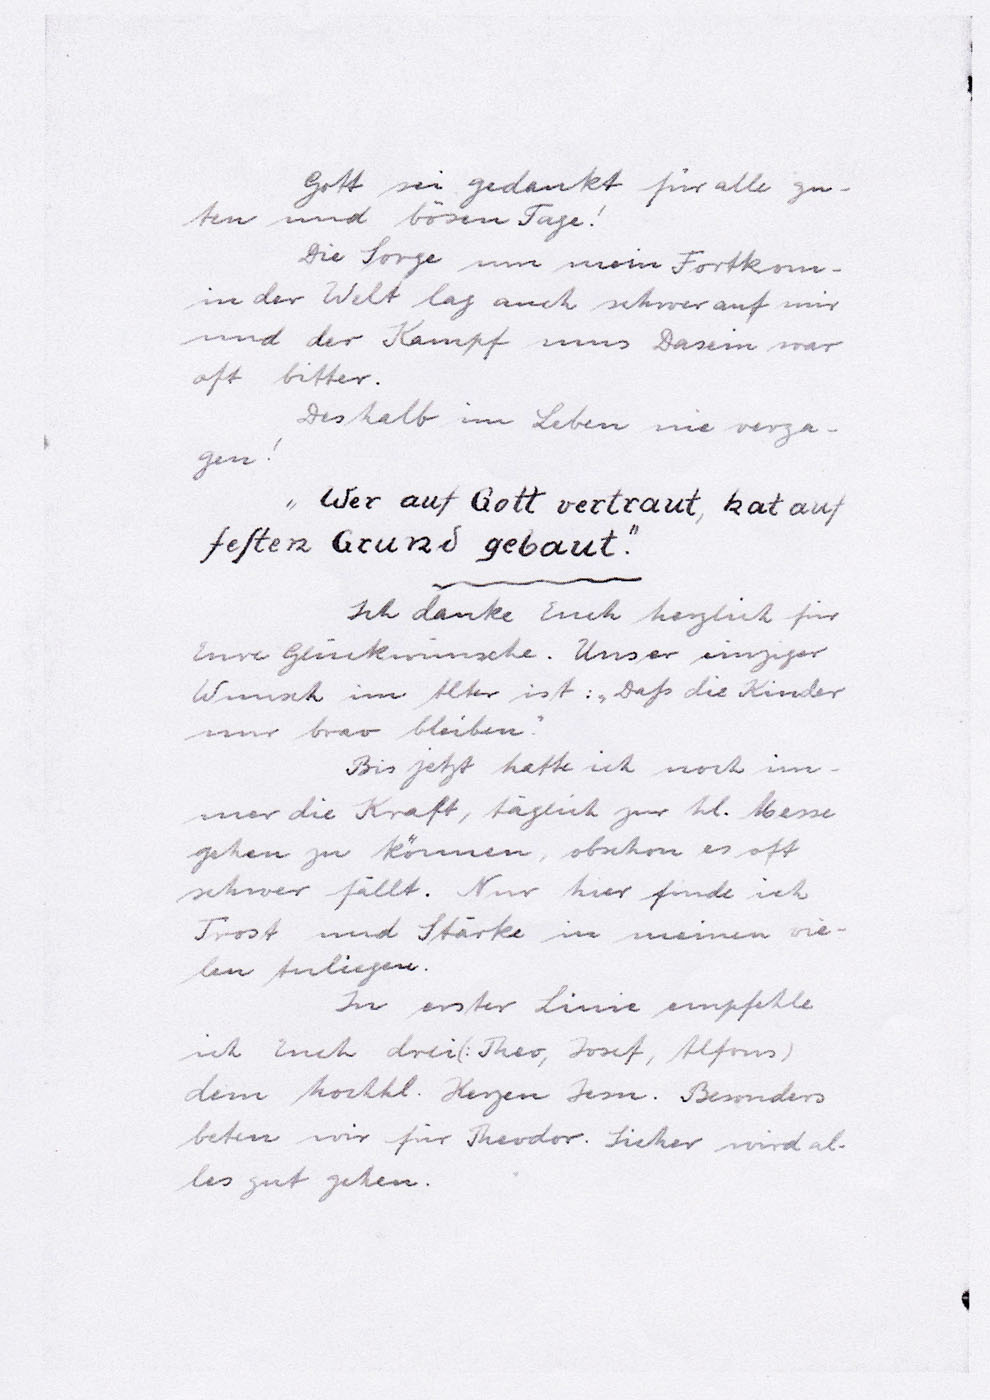 Gott sei gedankt für alle gu-
ten und bösen Tage!
Die Sorge um mein Fortkom-
in der Welt lag auch schwer auf mir
und der Kampf ums Dasein war
oft bitter.
Deshalb im Leben nie verza-
gen!
„Wer auf Gott vertraut, hat auf
festen Grund gebaut."
Ich danke Euch herzlich für
Eure Glückwünsche. Unser einziger
Wunsch im Alter ist: „Daß die Kinder
nur brav bleiben."
Bis jetzt hatte ich noch im-
mer die Kraft, täglich zur hl. Messe
gehen zu können, obschon es oft
schwer fällt. Nur hier finde ich
Trost und Stärke in meinen vie-
len Anliegen.
In erster Linie empfehle
ich Euch drei (: Theo, Josef, Alfons)
dem hochhl. Herzen Jesu. Besonders
beten wir für Theodor. Sicher wird al-
les gut gehen.